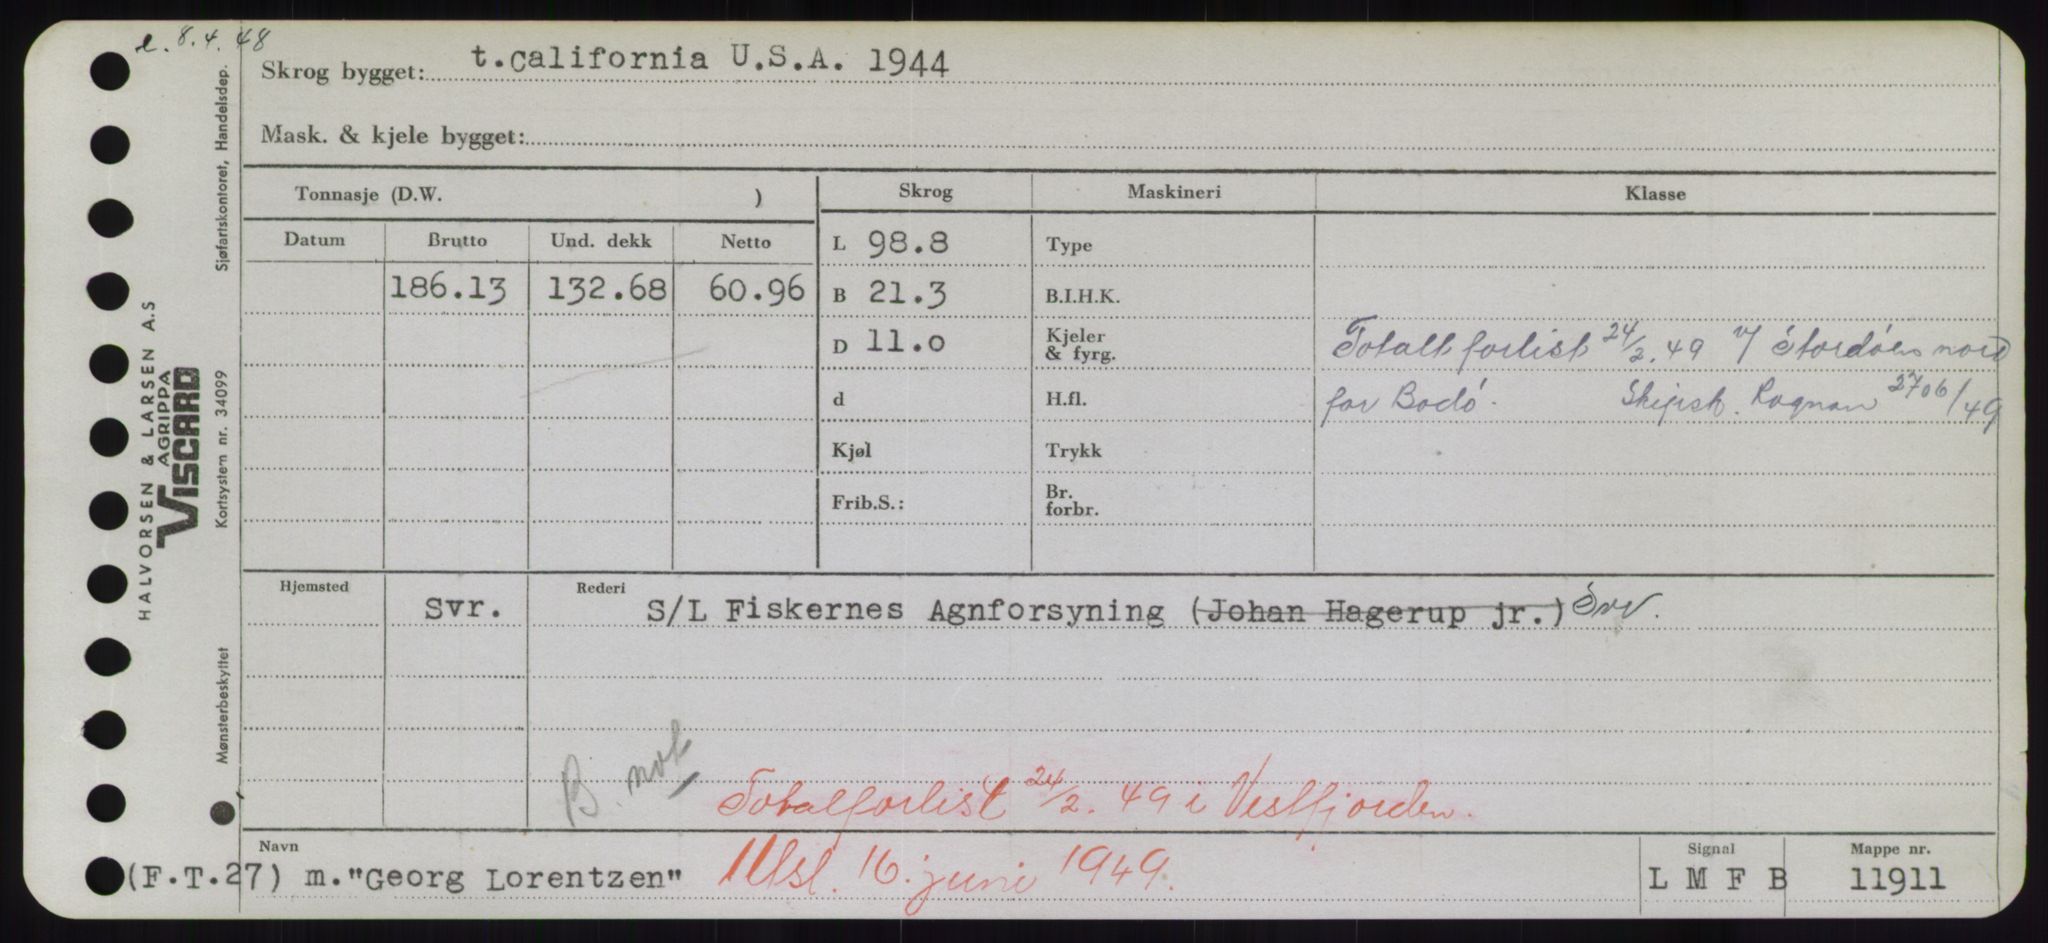 e. 8.4.48
Skrog bygget: t. California U.S.A. 1944
Mask. & kjele bygget:
Tonnasje (D.W. )
Skrog Maskineri Klasse
Datum Brutto Und. dekk Netto
L 98.8 Type
186.13 132.68 60.96 B 21.3 B.I.H.K.
D 11.0 Kjeler & fyrg. Totalt forlist 24/2.49 v/ Stordöen nord
d H.fl. for Bodö. Skipsk. Rognan 2706/49
Kjøl Trykk
Frib.S.: Br. forbr.
Hjemsted Rederi
Svr. S/L Fiskernes Agnforsyning (Johan Hagerup jr.) Svv.
B. not
Totalforlist 24/2. 49 i Vestfjorden.
Navn Signal Mappe nr.
(F.T.27) m."Georg Lorentzen" Utsl. 16. juni 1949. L M F B 11911
HALVORSEN & LARSEN A.S
AGRIPPA
VISCARD
Mønsterbeskyttet Kortsystem nr. 34099 Sjøfartskontoret, Handelsdep.